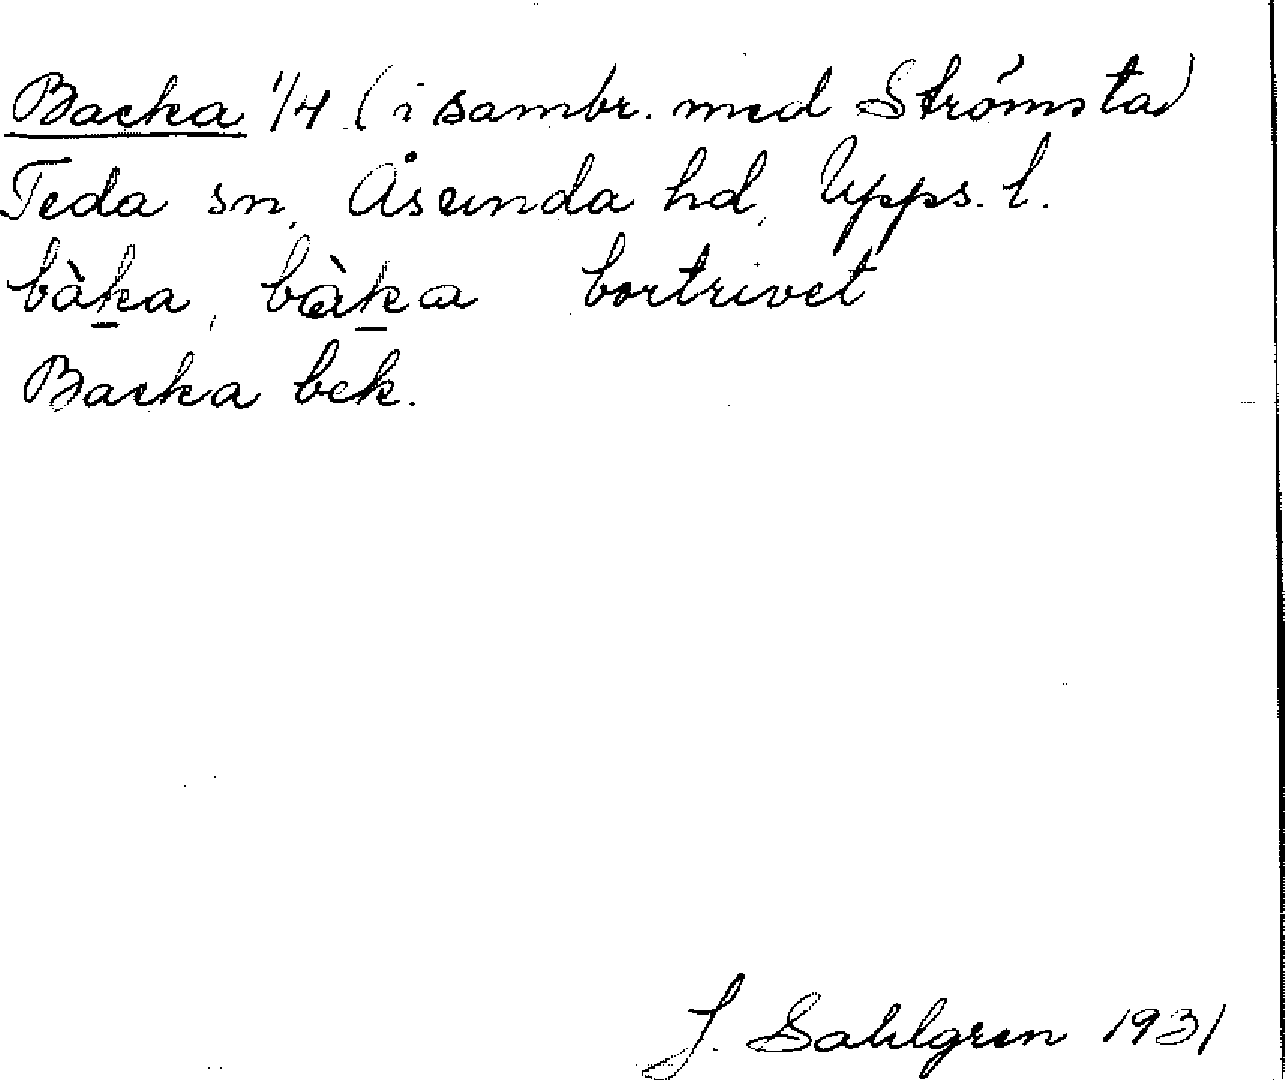 Backa 1/4 (i sambr. med Strömsta)
Teda sn, Åsunda hd, Upps. l.
bàk̲a, bàk̲a bortrivet
Backa bek.
J. Sahlgren 1931